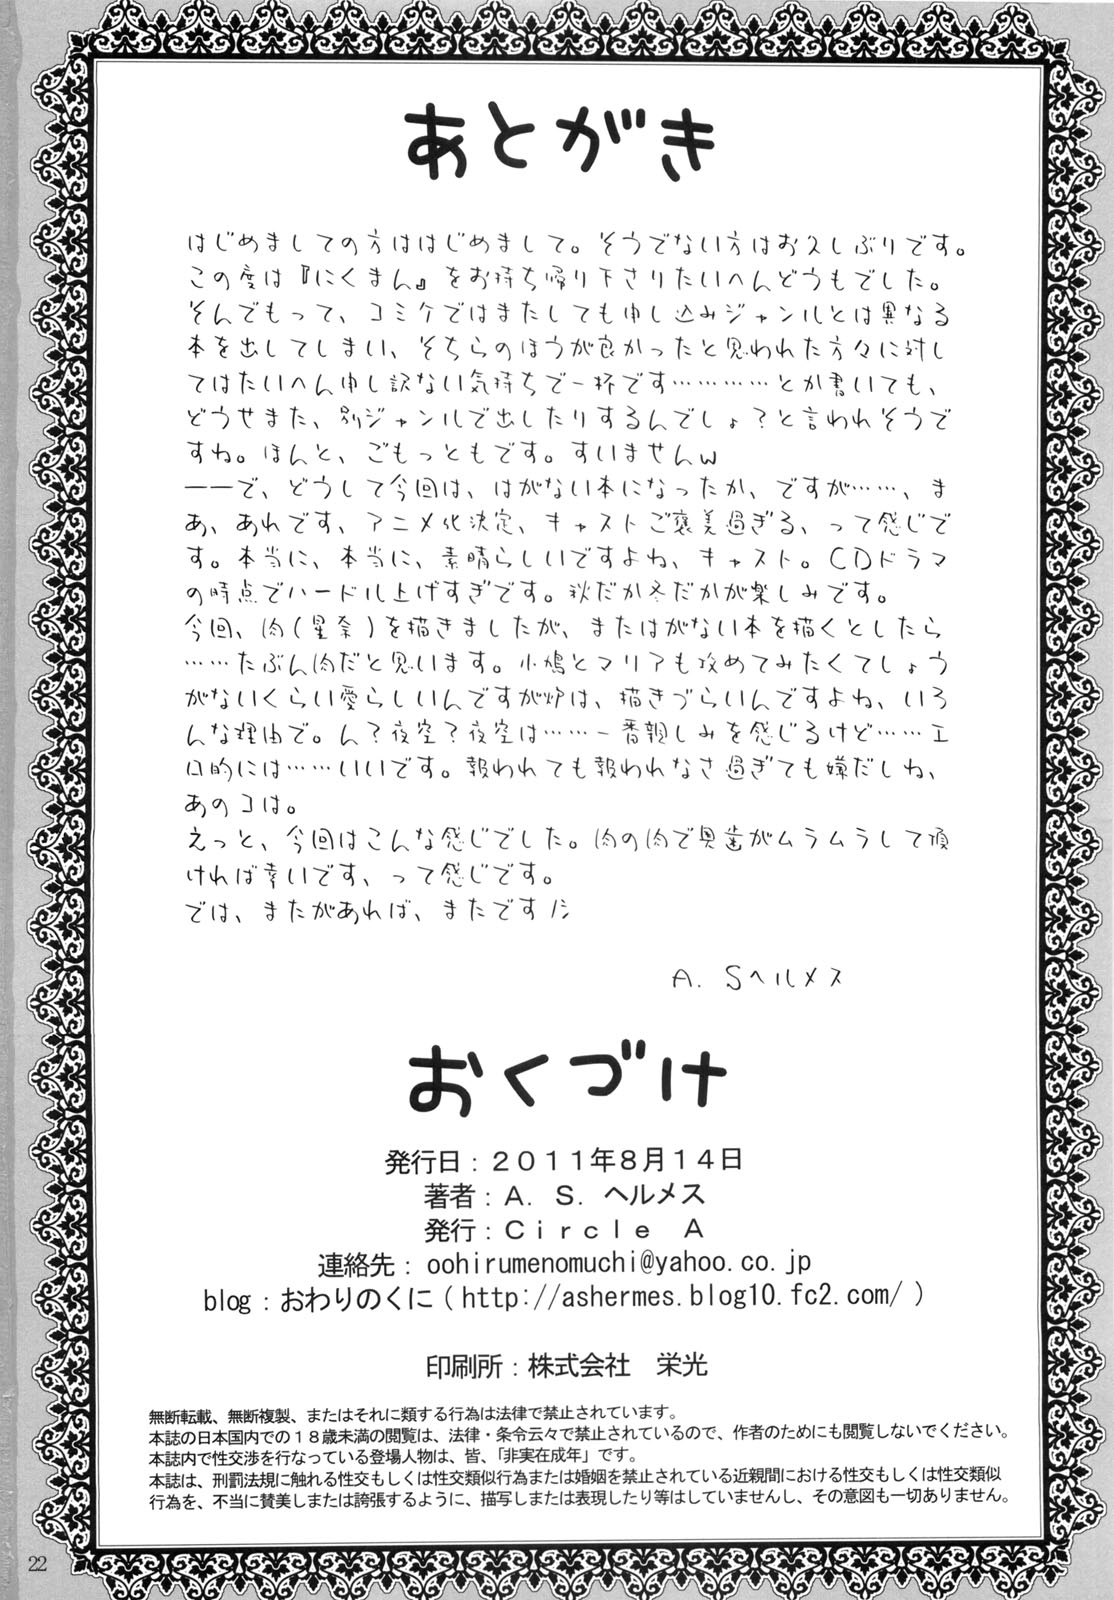 あとがき
はじめましての方ははじめまして。そうでない方はお久しぶりです。
この度は『にくまん』をお持ち帰り下さりたいへんどうもでした。
そんでもって、コミケではまたしても申し込みジャンルとは異なる
本を出してしまい、そちらのほうが良かったと思われた方々に対し
てはたいへん申し訳ない気持ちで一杯です…………とか書いても、
どうせまた、別ジャンルで出したりするんでしょ？と言われそうで
すね。ほんと、ごもっともです。すいませんw
――で、どうして今回は、はがない本になったか、ですが……、ま
あ、あれです、アニメ化決定、キャストご褒美過ぎる、って感じで
す。本当に、本当に、素晴らしいですよね、キャスト。CDドラマ
の時点でハードル上げすぎです。秋だか冬だかが楽しみです。
今回、肉(星奈)を描きましたが、またはがない本を描くとしたら
……たぶん肉だと思います。小鳩とマリアも攻めてみたくてしょう
がないくらい愛らしいんですが炉は、描きづらいんですよね、いろ
んな理由で。ん？夜空？夜空は……一番親しみを感じるけど……エ
ロ的には……いいです。報われても報われなさ過ぎても嫌だしね、
あのコは。
えっと、今回はこんな感じでした。肉の肉で奥歯がムラムラして頂
ければ幸いです、って感じです。
では、またがあれば、またですノシ
A. Sヘルメス
おくづけ
発行日：２０１１年８月１４日
著者：A. S. ヘルメス
発行：Circle A
連絡先：oohirumenomuchi@yahoo.co.jp
blog：おわりのくに（http://ashermes.blog10.fc2.com/）
印刷所：株式会社　栄光
無断転載、無断複製、またはそれに類する行為は法律で禁止されています。
本誌の日本国内での１８歳未満の閲覧は、法律・条令云々で禁止されているので、作者のためにも閲覧しないでください。
本誌内で性交渉を行なっている登場人物は、皆、「非実在成年」です。
本誌は、刑罰法規に触れる性交もしくは性交類似行為または婚姻を禁止されている近親間における性交もしくは性交類似
行為を、不当に賛美しまたは誇張するように、描写しまたは表現したり等はしていませんし、その意図も一切ありません。
22